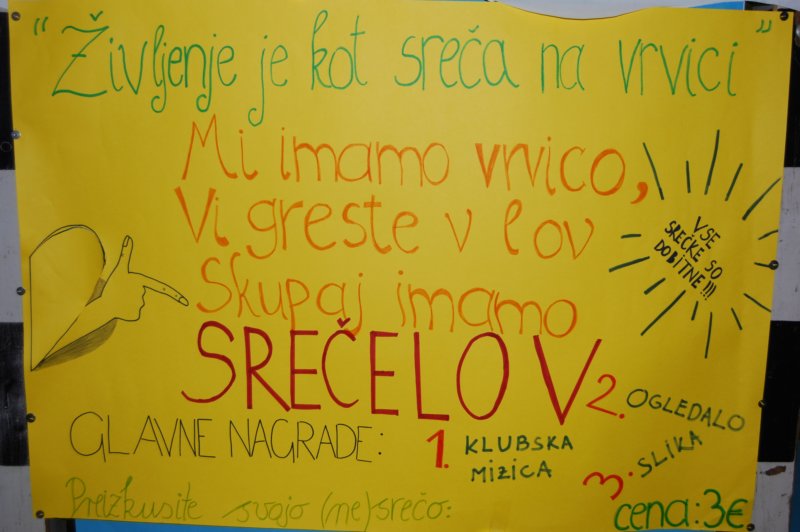 "Življenje je kot sreča na vrvici"
Mi imamo vrvico,
Vi greste v lov
Skupaj imamo
SREČELOV
VSE
SREČKE SO
DOBITNE!!!
GLAVNE NAGRADE:
1. KLUBSKA
MIZICA
2. OGLEDALO
3. SLIKA
Preizkusite svojo (ne)srečo:
cena: 3€